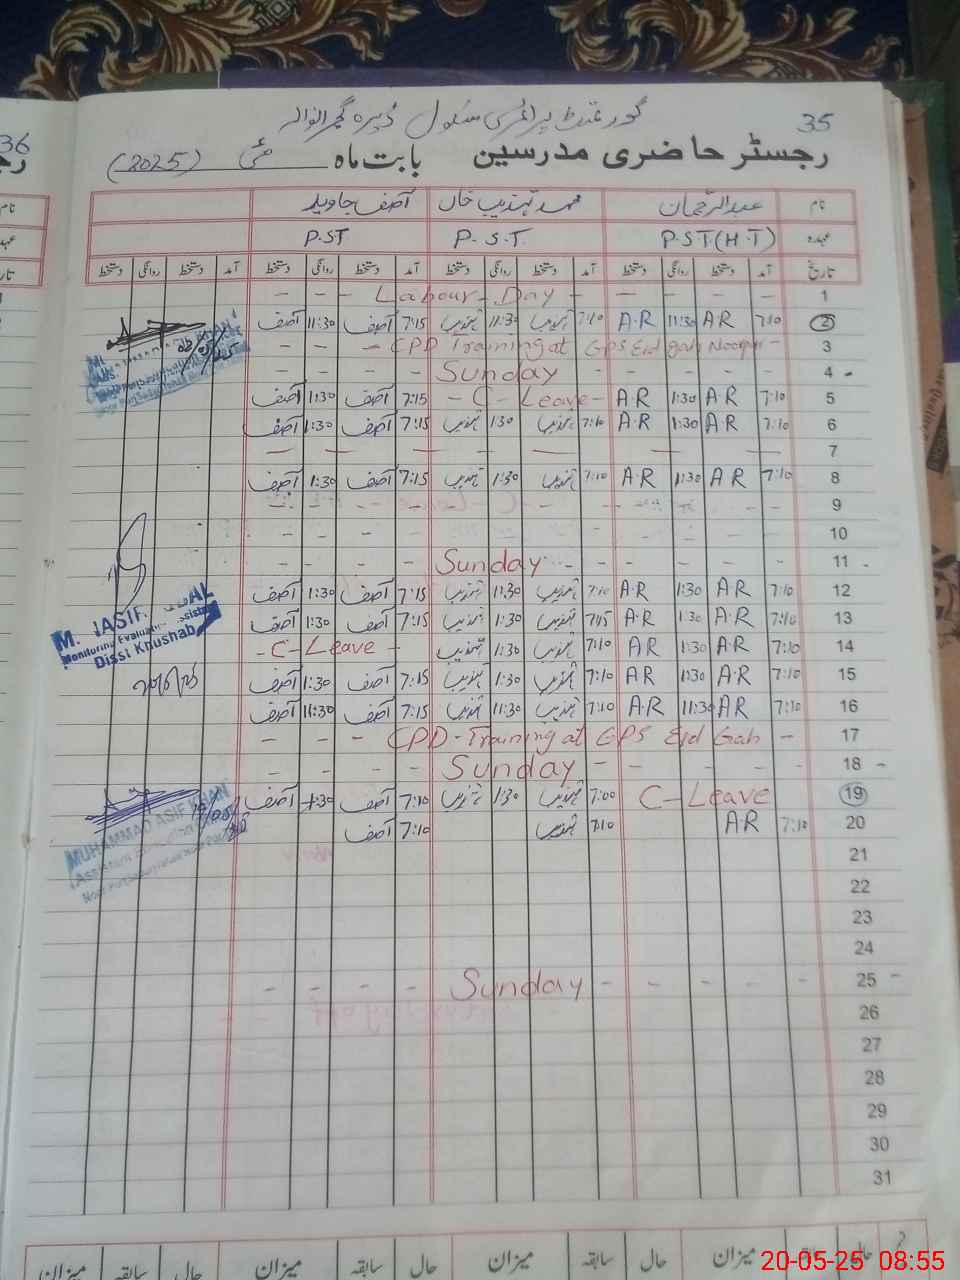 گورنمنٹ پرائمری سکول ڈیرہ گجرانوالہ
35
36
رجسٹر حاضری مدرسین بابت ماہ مئی (2025)
نام عبدالرحمان محمد تہذیب خاں آصف جاوید
عہدہ P.ST(H.T) P.S.T. P.ST
تاریخ آمد دستخط روانگی دستخط آمد دستخط روانگی دستخط آمد دستخط روانگی دستخط آمد دستخط روانگی دستخط
1 - - - Labour - Day - - - - -
2 7:10 A R 11:30 A.R 7:10 تہذیب 11:30 تہذیب 7:15 آصف 11:30 آصف
3 - - - CPD Training at GPS Eid gah Noorpur -
4 - - - - Sunday - - - - -
5 7:10 A.R 1:30 A.R - C - Leave - 7:15 آصف 1:30 آصف
6 7:10 A.R 1:30 A.R 7:10 تہذیب 1:30 تہذیب 7:15 آصف 1:30 آصف
7 — — — — — — —
8 7:10 A R 1:30 A R 7:10 تہذیب 1:30 تہذیب 7:15 آصف 1:30 آصف
9
10
11 - - - - Sunday - - - -
12 7:10 A R 1:30 A.R 7:10 تہذیب 11:30 تہذیب 7:15 آصف 1:30 آصف
13 7:10 A.R 1:30 A.R 7:15 تہذیب 1:30 تہذیب 7:15 آصف 1:30 آصف
14 7:10 A R 1:30 A R 7:10 تہذیب 1:30 تہذیب - C - Leave -
15 7:10 A R 1:30 A R 7:10 تہذیب 1:30 تہذیب 7:15 آصف 1:30 آصف
16 7:10 A R 11:30 A.R 7:10 تہذیب 11:30 تہذیب 7:15 آصف 11:30 آصف
17 - - - CPD - Training at GPS Eid Gah -
18 - - - - Sunday - - - - -
19 C - Leave 7:00 تہذیب 1:30 تہذیب 7:10 آصف 1:30 آصف
20 7:10 A.R 7:10 تہذیب 7:10 آصف
21
22
23
24
25 - - - - Sunday - - - - -
26
27
28
29
30
31
M. ASIF
Monitoring Evaluation Assistant
Dissi Khushab
MUHAMMAD ASIF KHAN
حال سابقہ میزان حال سابقہ میزان حال سابقہ میزان حال سابقہ میزان
20-05-25 08:55